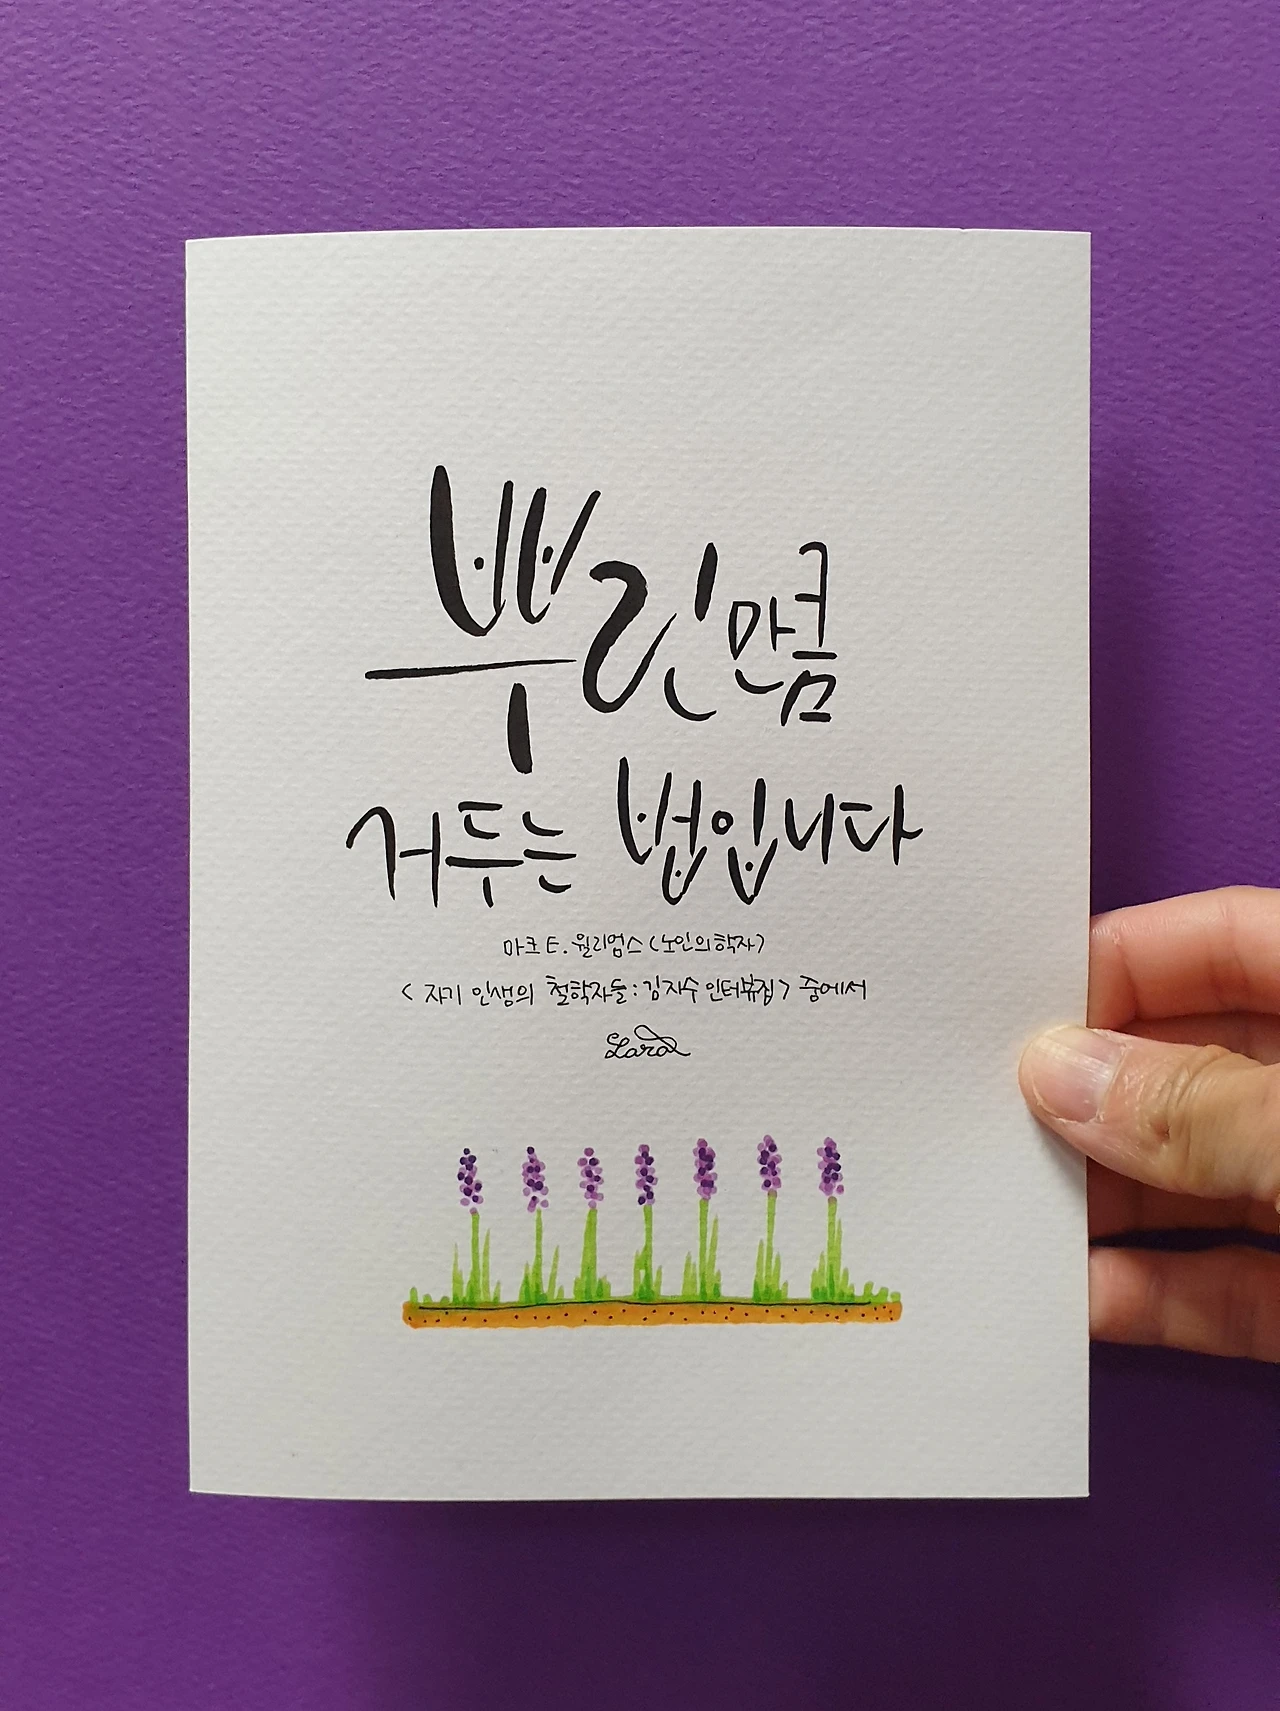 뿌린만큼
거두는 법입니다
마크 E. 윌리엄스 (노인의학자)
< 자기 인생의 철학자들 : 김지수 인터뷰집 > 중에서
Lara